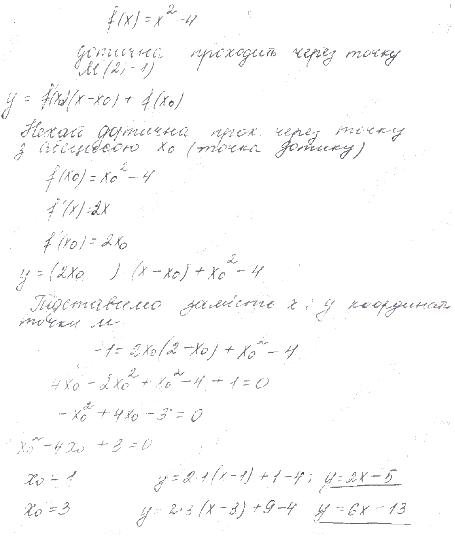 f(x) = x² - 4
дотична проходить через точку
M(2; -1)
y = f'(x₀)(x - x₀) + f(x₀)
Нехай дотична прох. через точку
з абсцисою x₀ (точка дотику)
f(x₀) = x₀² - 4
f'(x) = 2x
f'(x₀) = 2x₀
y = (2x₀ ) (x - x₀) + x₀² - 4
Підставимо замість x і y координати
точки M.
-1 = 2x₀(2 - x₀) + x₀² - 4
4x₀ - 2x₀² + x₀² - 4 + 1 = 0
-x₀² + 4x₀ - 3 = 0
x₀² - 4x₀ + 3 = 0
x₀ = 1 y = 2·1(x - 1) + 1 - 4; y = 2x - 5
x₀ = 3 y = 2·3(x - 3) + 9 - 4 y = 6x - 13